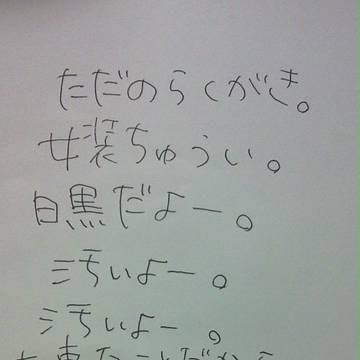 ただのらくがき。
女装ちゅうい。
白黒だよー。
汚いよー。
汚いよー。